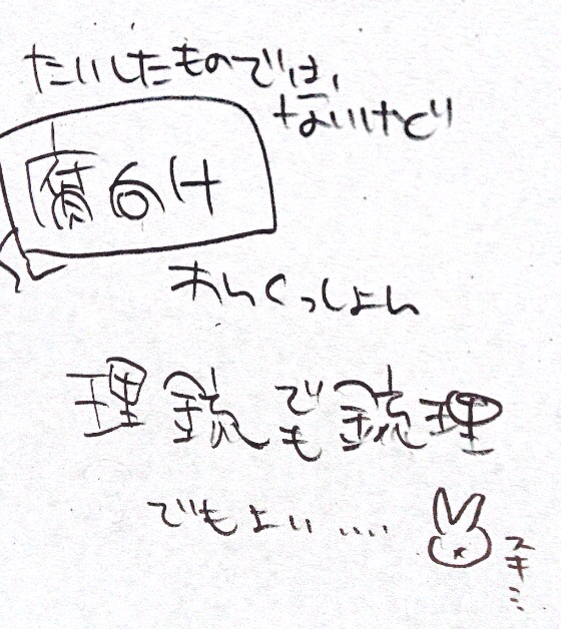 たいしたものでは、
ないけど
腐向け
わんくっしょん
理銃でも銃理
でもよい....
スキミ